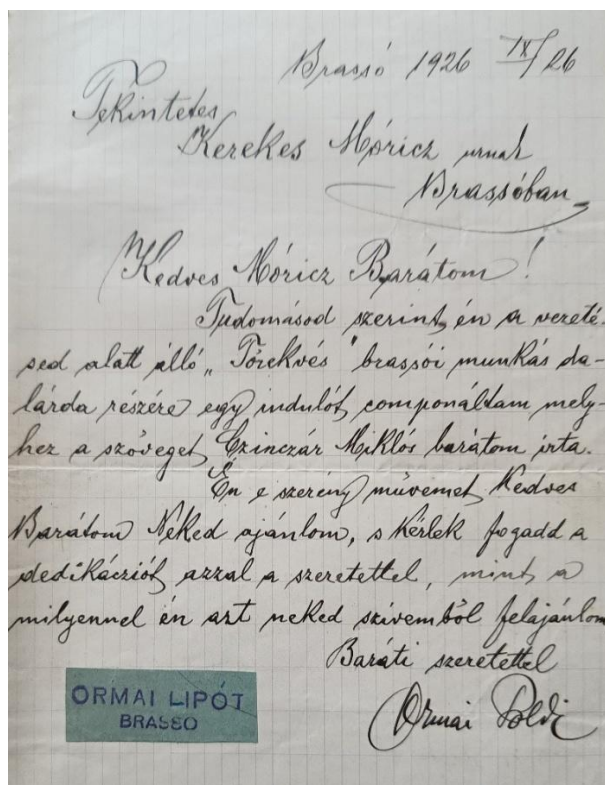 Brassó 1926 IX/26
Tekintetes
Kerekes Móricz urnak
Brassóban
Kedves Móricz Barátom!
Tudomásod szerint, én a vezeté-
sed alatt álló „Törekvés" brassói munkás da-
lárda részére egy indulót componáltam mely-
hez a szöveget, Czinczár Miklós barátom irta.
Én e szerény művemet, Kedves
Barátom Néked ajánlom, s kérlek fogadd a
dedikácziót, azzal a szeretettel, mint a
milyennel én azt neked szivemből felajánlom
Baráti szeretettel
Ormai Poldi
ORMAI LIPÓT
BRASSO